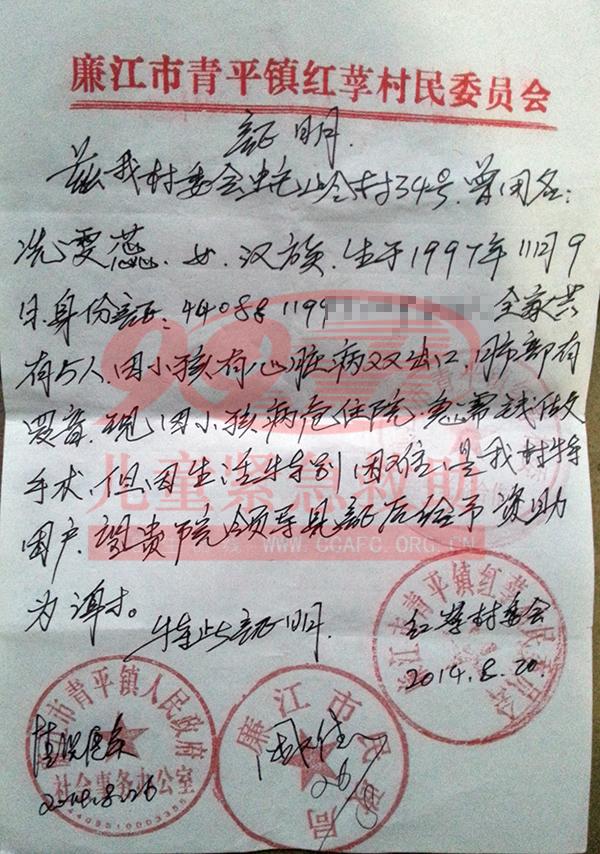 廉江市青平镇红莩村民委员会
証明.
兹我村委会 村34号.曾用名:
冼雯蕊.女.汉族.生于1997年11月9
日.身份証:440881199 全家共
有5人.因小孩有心脏病双出口.肺部有
罗音.现因小孩病危住院.急需钱做
手术.但因生活特别困难.是我村特
困户.望贵院领导见証后给予资助
为谢。
特此証明.
红莩村委会
2014.8.20.
廉江市青平镇红莩村民委员会
市青平镇人民政府
社会事务办公室
情况属实
2014.8.26
廉江市民政局
26/8
9958
儿童紧急救助
WWW.CCAFC.ORG.CN